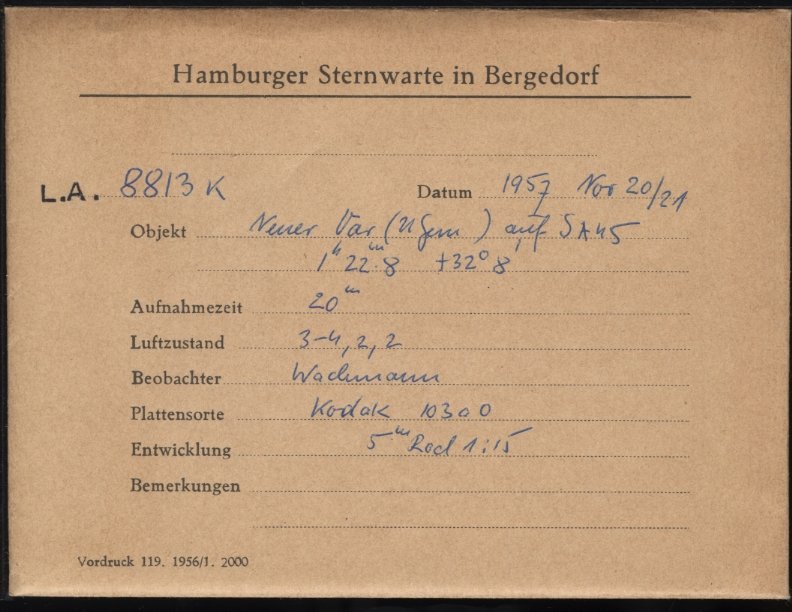 Hamburger Sternwarte in Bergedorf
L.A. 8813 K Datum 1957 Nov 20/21
Objekt Neuer Var (U Gem) auf SA 45
1ʰ 22ᵐ.8 +32° 8'
Aufnahmezeit 20ᵐ
Luftzustand 3-4, 2, 2
Beobachter Wachmann
Plattensorte Kodak 103a0
Entwicklung 5ᵐ Rod 1:15
Bemerkungen
Vordruck 119. 1956/1. 2000